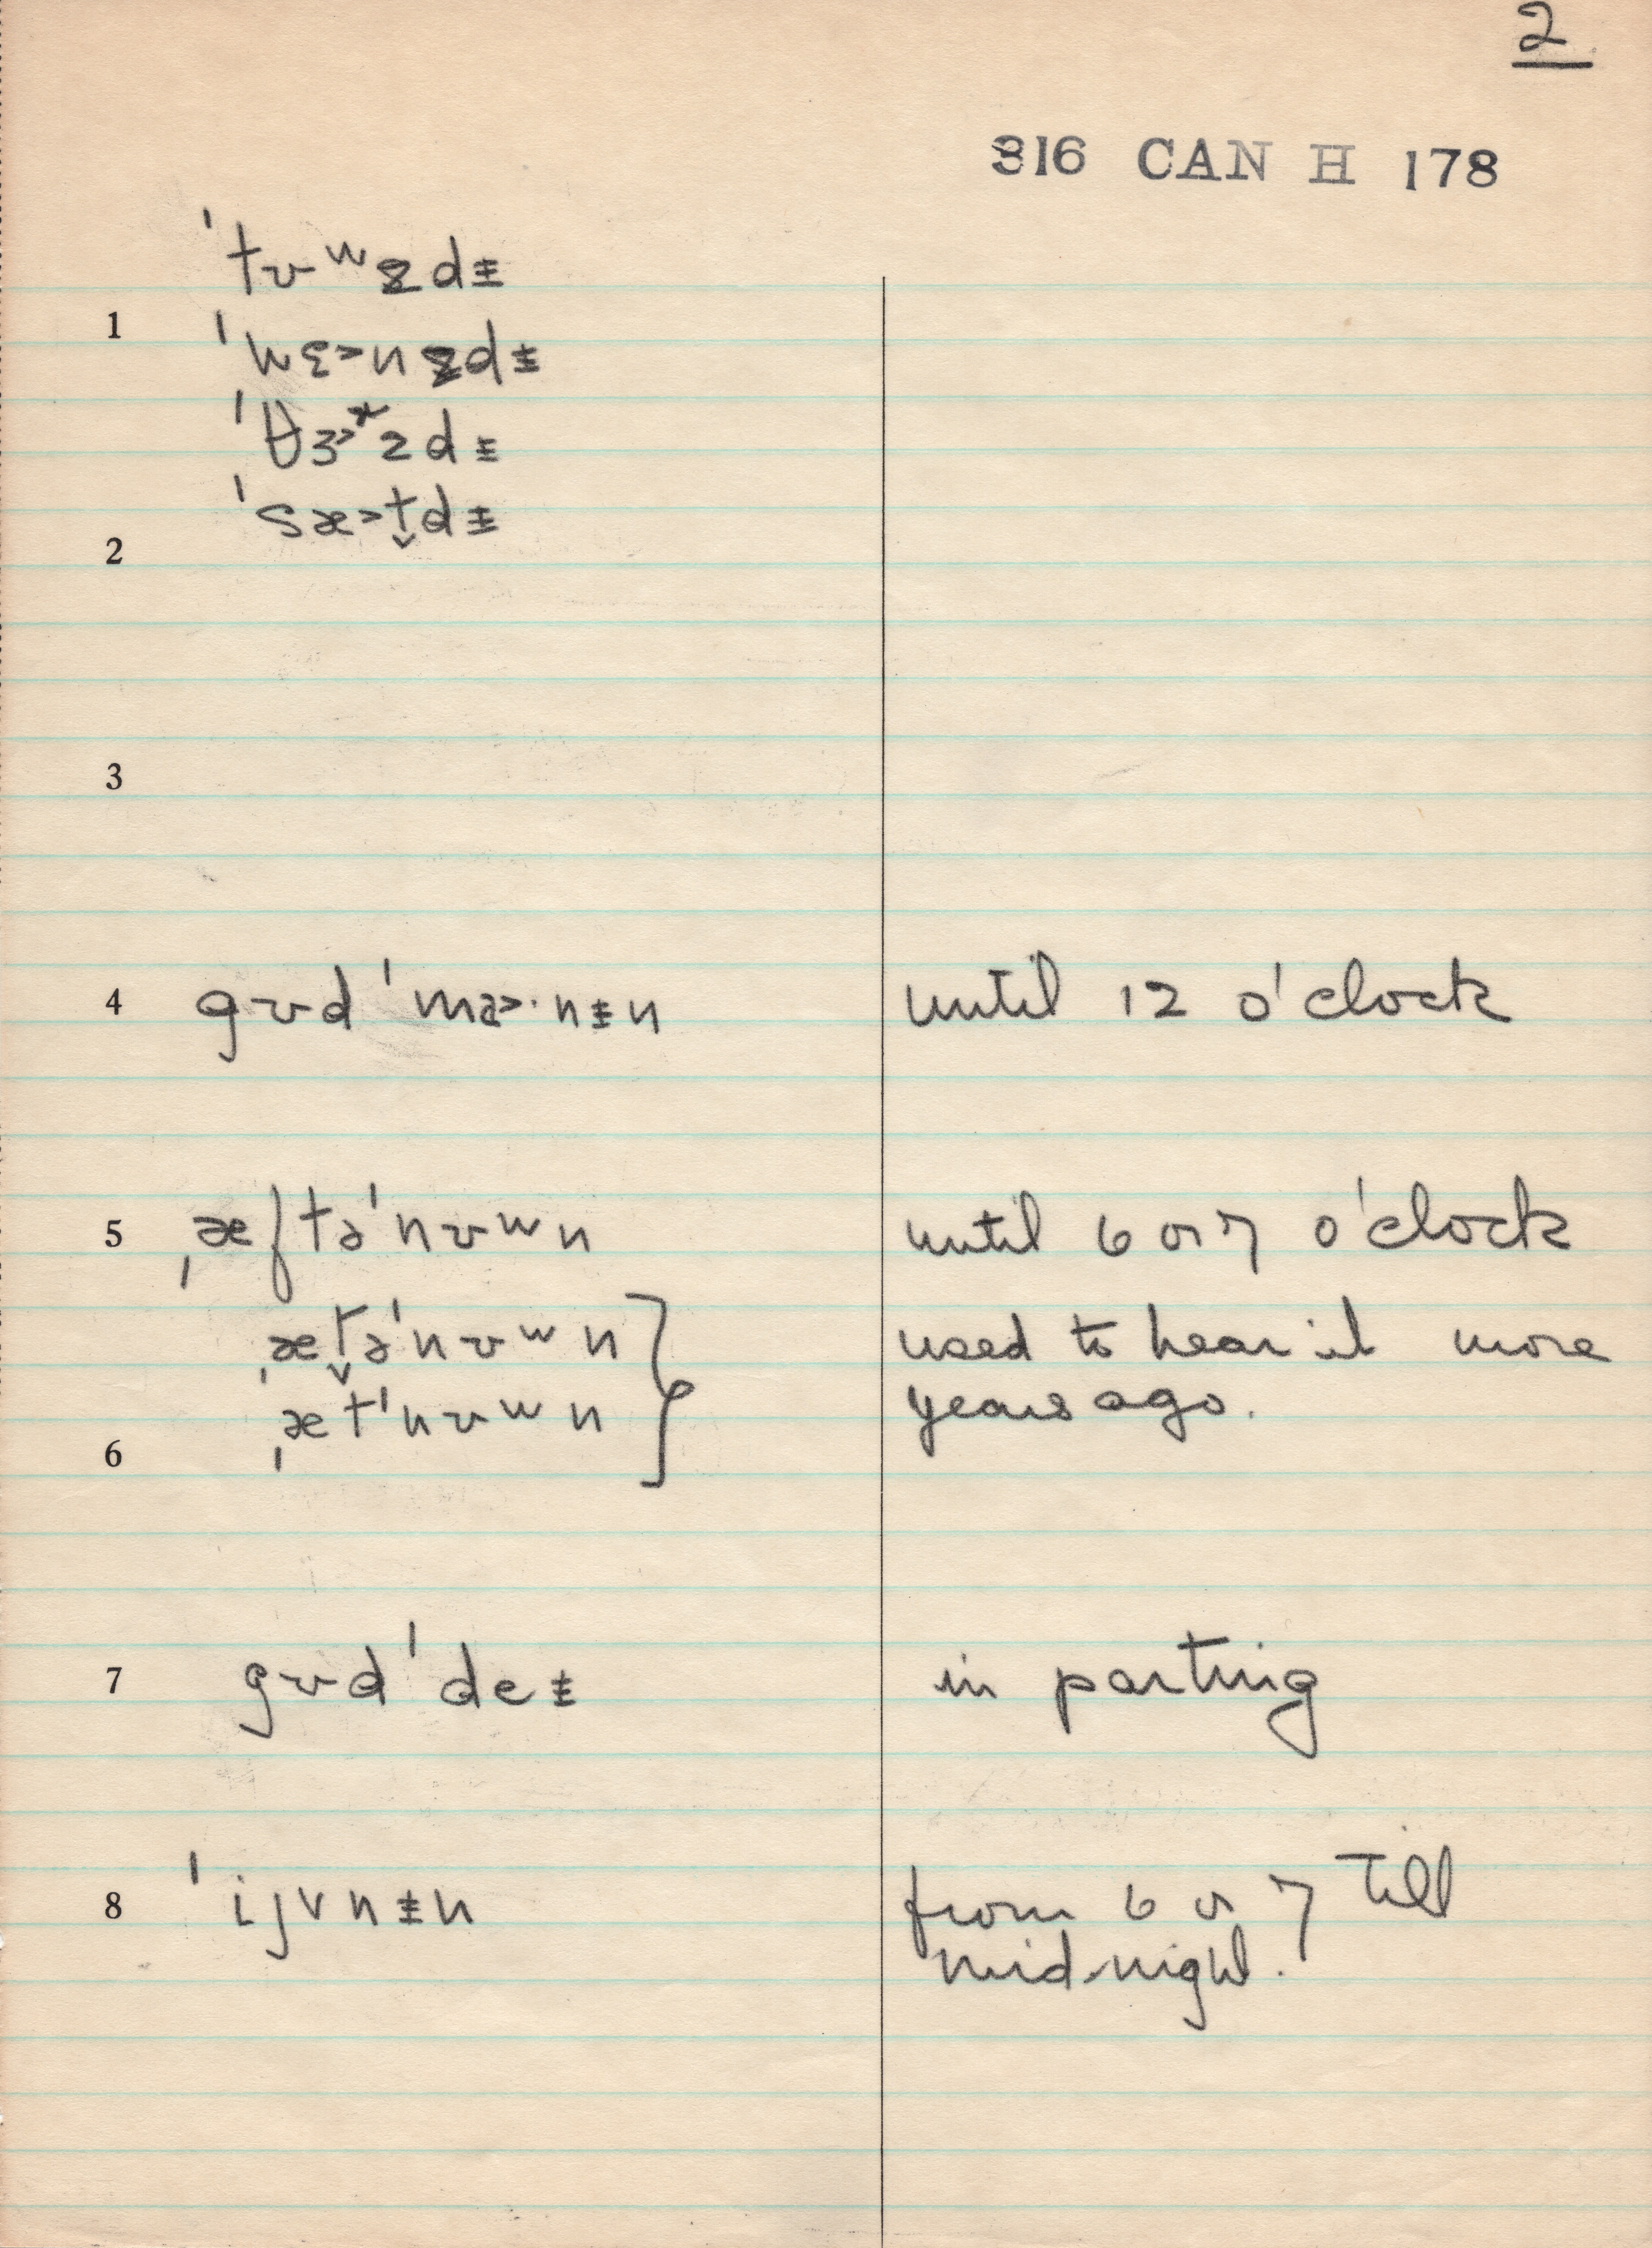 2
316 CAN H 178
ˈtʊʷzdɨ
1
ˈwɛ˃nzdɨ
ˈθɜ˃ʳzdɨ
ˈsæ˃t̬dɨ
2
3
4 gʊdˈmɒ˃·nɨn until 12 o'clock
5 ˌæftəˈnʊʷn until 6 or 7 o'clock
ˌæt̬əˈnʊʷn used to hear it more
ˌætˈnʊʷn years ago.
6
7 gʊdˈdeɨ in parting
8 ˈijvnɨn from 6 or 7 till
mid-night.